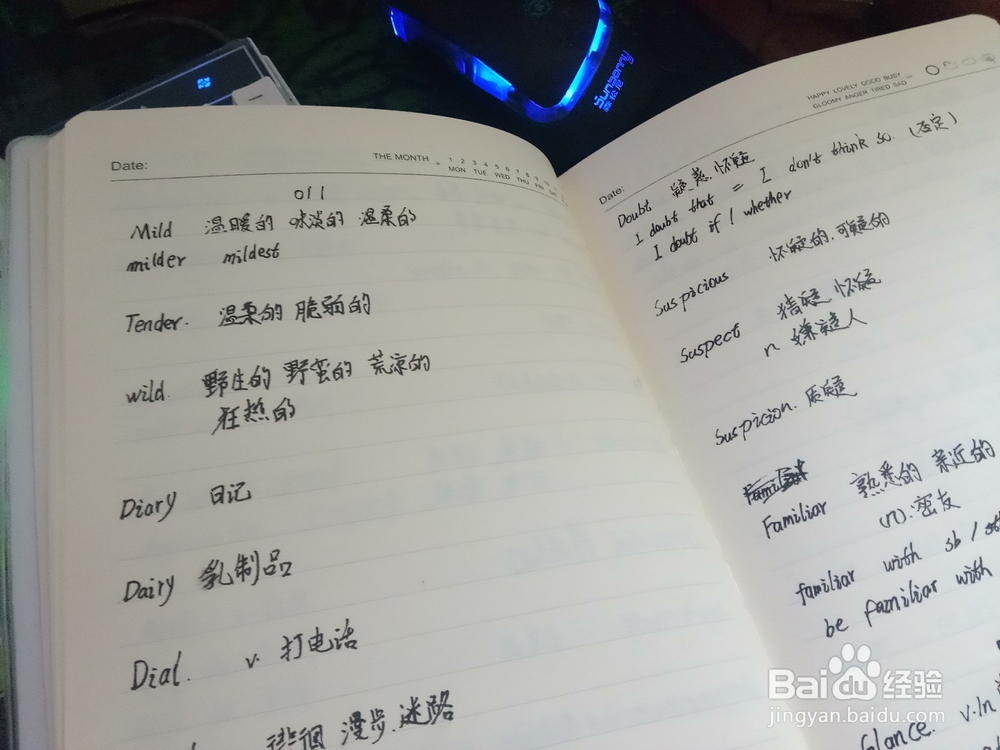 Date:
THE MONTH
1 2 3 4 5 6 7 8 9
MON TUE WED THU FRI SAT
011
Mild 温暖的 味淡的 温柔的
milder mildest
Tender. 温柔的 脆弱的
wild. 野生的 野蛮的 荒凉的
狂热的
Diary 日记
Dairy 乳制品
Dial. v. 打电话
徘徊 漫步.迷路
sunberry
HAPPY LOVELY GOOD BUSY
GLOOMY ANGER TIRED SAD
Date:
Doubt 疑惑.怀疑
I doubt that = I don't think so. (否定)
I doubt if / whether
Suspicious 怀疑的.可疑的
Suspect 猜疑 怀疑
n 嫌疑人
Suspicion. 质疑
Familiar 熟悉的 亲近的
(n).密友
familiar with sb / sth
be familiar with
Glance. v.ln
Baidu 经验
jingyan.baidu.com